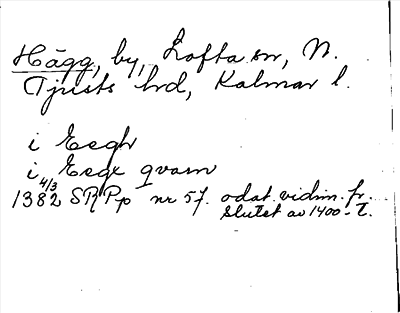 Hägg, by, Lofta sn, N.
Tjusts hrd, Kalmar l.
i Eegh
i Eegx qvarn
1382 4/3 SRPp nr 57. odat. vidim. fr.
slutet av 1400-t.